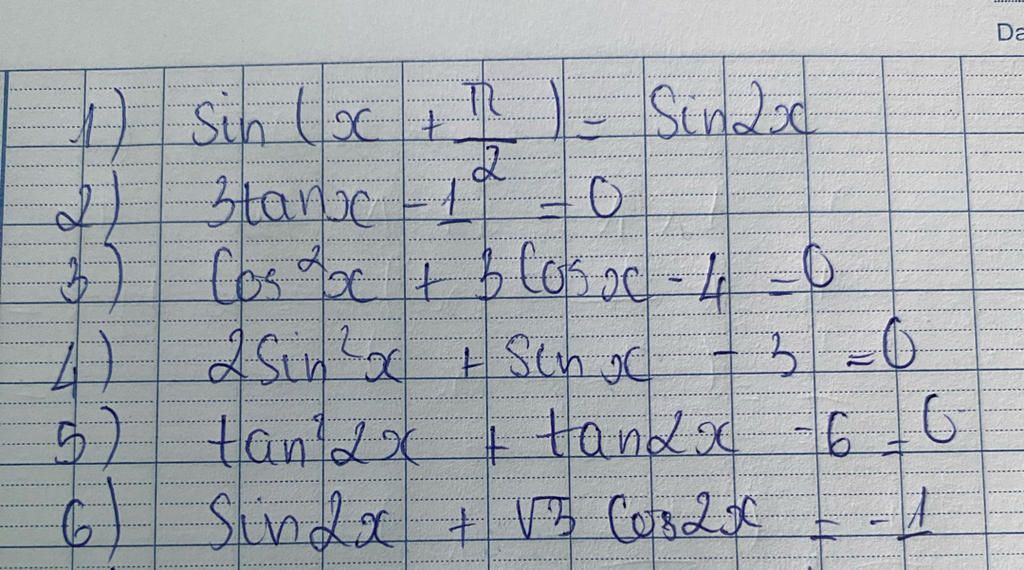 Da
1) sin(x + π/2) = Sin2x
2) 3tanx - 1 = 0
3) Cos²x + 3Cosx - 4 = 0
4) 2Sin²x + Sinx - 3 = 0
5) tan²2x + tan2x - 6 = 0
6) Sin2x + √3 Cos2x = -1